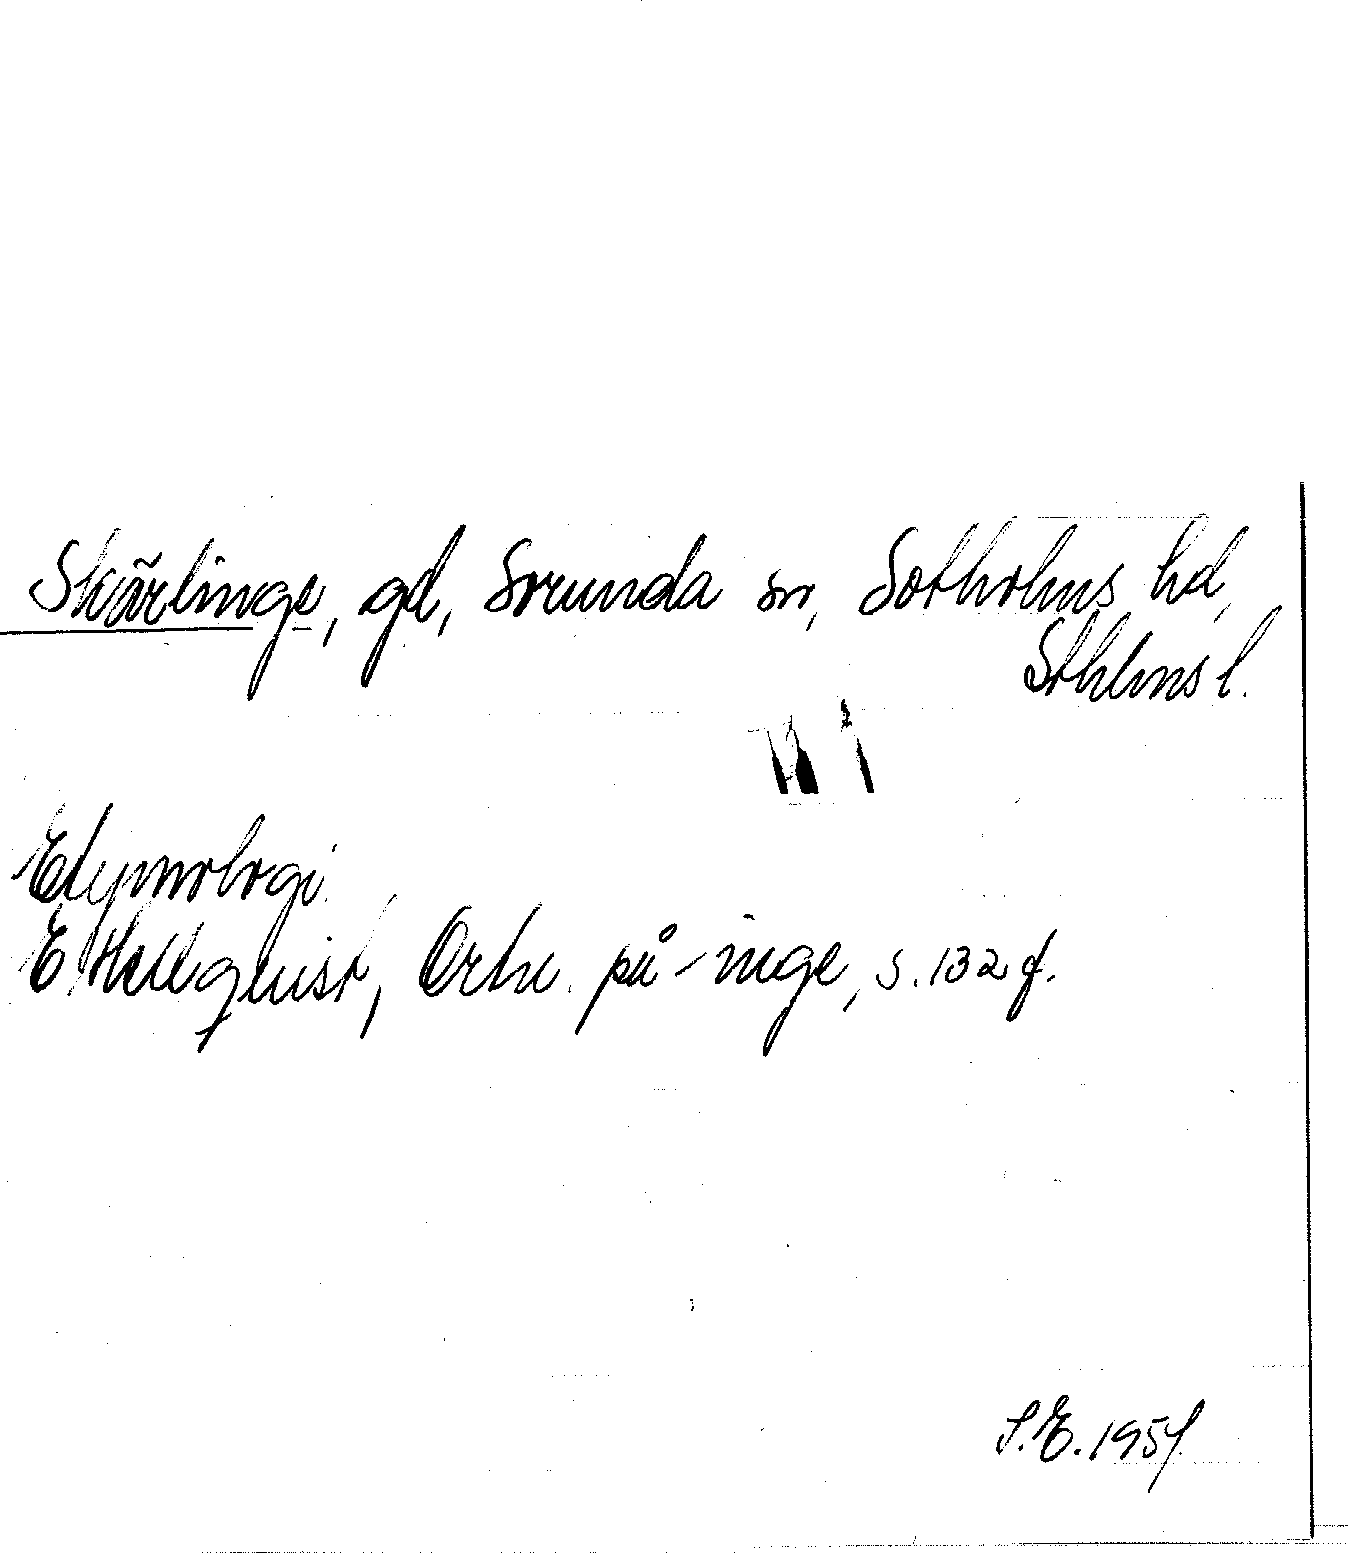 Skärlinge, gd, Sorunda sn, Sotholms hd,
Sthlms l.
Etymologi.
E Hellquist, Ortn. på -inge, s. 132 f.
S.E. 1957.